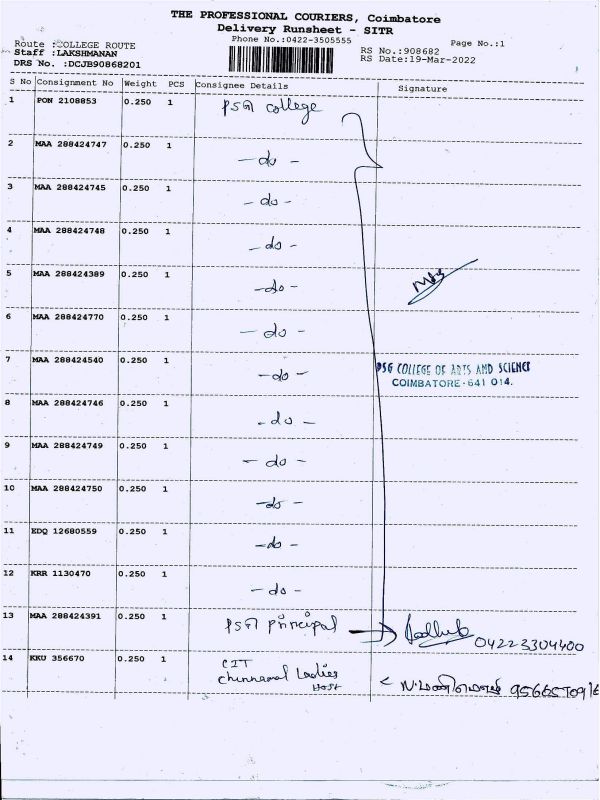 THE PROFESSIONAL COURIERS, Coimbatore
Delivery Runsheet - SITR
Phone No.:0422-3505555
Page No.:1
Route :COLLEGE ROUTE
Staff :LAKSHMANAN
DRS No. :DCJB90868201
RS No.:908682
RS Date:19-Mar-2022
S No Consignment No Weight PCS Consignee Details Signature
1 PON 2108853 0.250 1 PSG college
2 MAA 288424747 0.250 1 -do-
3 MAA 288424745 0.250 1 -do-
4 MAA 288424748 0.250 1 -do-
5 MAA 288424389 0.250 1 -do-
6 MAA 288424770 0.250 1 -do-
7 MAA 288424540 0.250 1 -do-
PSG COLLEGE OF ARTS AND SCIENCE
COIMBATORE-641 014.
8 MAA 288424746 0.250 1 -do-
9 MAA 288424749 0.250 1 -do-
10 MAA 288424750 0.250 1 -do-
11 EDQ 12680559 0.250 1 -do-
12 KRR 1130470 0.250 1 -do-
13 MAA 288424391 0.250 1 PSG principal
04223304400
14 KKU 356670 0.250 1 CIT
Chinnamal Ladies
Host